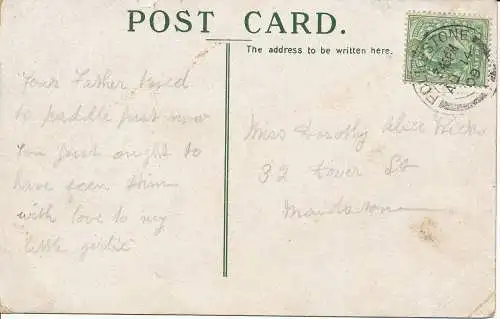 POST CARD.
The address to be written here.
Your Father tried
to paddle just now
You just ought to
have seen him
with love to my
little girlie
Miss Dorothy Alice Hicks
32 Tower St